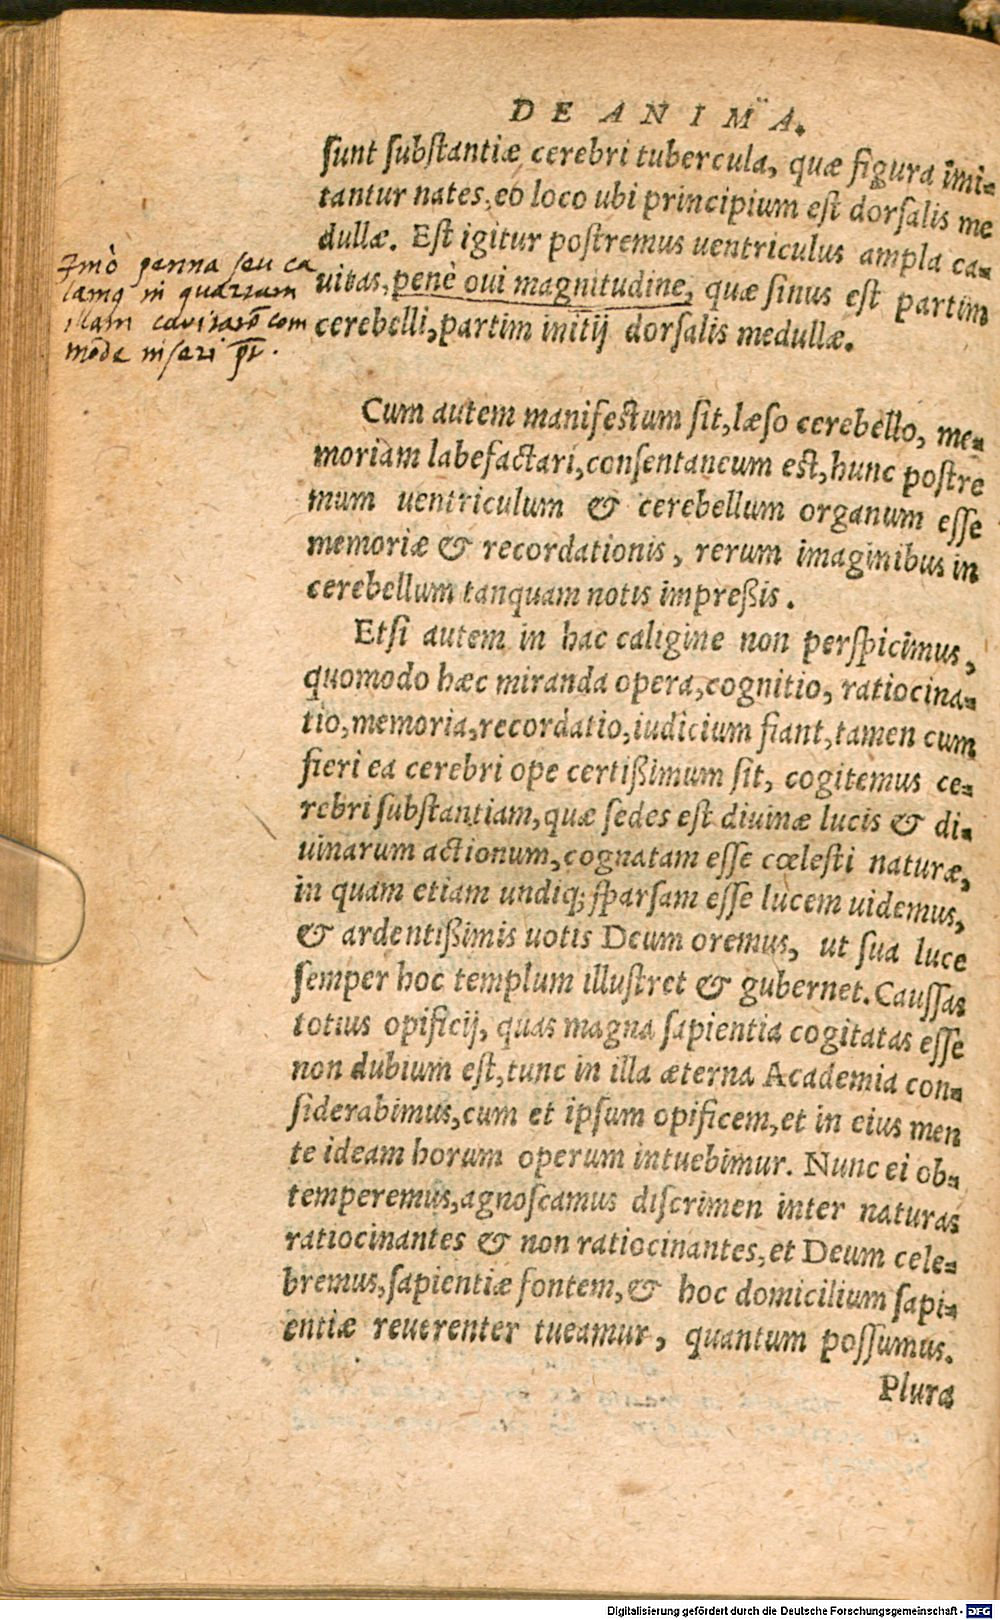 DE ANIMA.
ſunt ſubſtantiæ cerebri tubercula, quæ figura imi-
tantur nates, eo loco ubi principium eſt dorſalis me
dullæ. Eſt igitur poſtremus uentriculus ampla ca-
uitas, penè oui magnitudine, quæ ſinus eſt partim
cerebelli, partim initij dorſalis medullæ.
Imò penna ſeu ca
lamꝫ in quartam
illam cavitatē com
mōde inſeri pt̄.
Cum autem manifeſtum ſit, læſo cerebello, me-
moriam labefactari, conſentaneum eſt, hunc poſtre
mum uentriculum & cerebellum organum eſſe
memoriæ & recordationis, rerum imaginibus in
cerebellum tanquam notis impreßis.
Etſi autem in hac caligine non perſpicimus,
quomodo hæc miranda opera, cognitio, ratiocina-
tio, memoria, recordatio, iudicium fiant, tamen cum
fieri ea cerebri ope certißimum ſit, cogitemus ce-
rebri ſubſtantiam, quæ ſedes eſt diuinæ lucis & di-
uinarum actionum, cognatam eſſe cœleſti naturæ,
in quam etiam undiq; ſparſam eſſe lucem uidemus,
& ardentißimis uotis Deum oremus, ut ſua luce
ſemper hoc templum illuſtret & gubernet. Cauſſas
totius opificij, quas magna ſapientia cogitatas eſſe
non dubium eſt, tunc in illa æterna Academia con-
ſiderabimus, cum et ipſum opificem, et in eius men
te ideam horum operum intuebimur. Nunc ei ob-
temperemus, agnoſcamus diſcrimen inter naturas
ratiocinantes & non ratiocinantes, et Deum cele-
bremus, ſapientiæ fontem, & hoc domicilium ſapi-
entiæ reuerenter tueamur, quantum poſſumus.
Plura
Digitalisierung gefördert durch die Deutsche Forschungsgemeinschaft - DFG